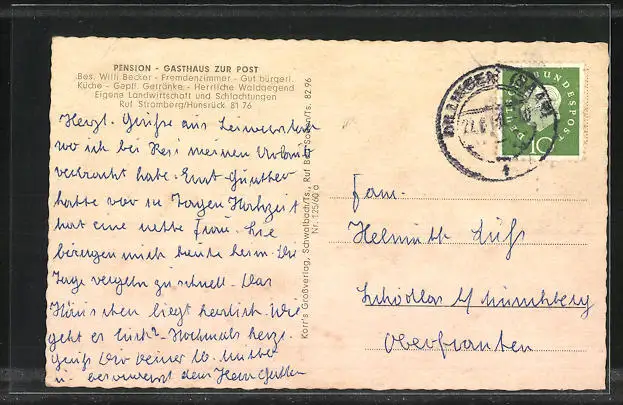 PENSION - GASTHAUS ZUR POST
Bes. Willi Becker - Fremdenzimmer - Gut bürgerl.
Küche - Gepfl. Getränke - Herrliche Waldgegend
Eigene Landwirtschaft und Schlachtungen
Ruf Stromberg/Hunsrück 81 76
Herzl. Grüße aus
wo ich bei Resi meinen Urlaub
verbracht habe. Ernst-Günther
hatte vor 10 Tagen Hochzeit
hat eine nette Frau. Sie
bringen mich heute heim. Die
Tage vergehn zu schnell. Das
Häuschen liegt herrlich. Wie
geht es Euch? Nochmals herzl.
Grüße Dir Deiner lb. Mutter
u.
Korr's Großverlag, Schwalbach/Ts., Ruf Bad Soden/Ts. 82 96
Nr. 125/60 a
DEUTSCHE BUNDESPOST
10
Fam.
Helmuth
Oberfranken